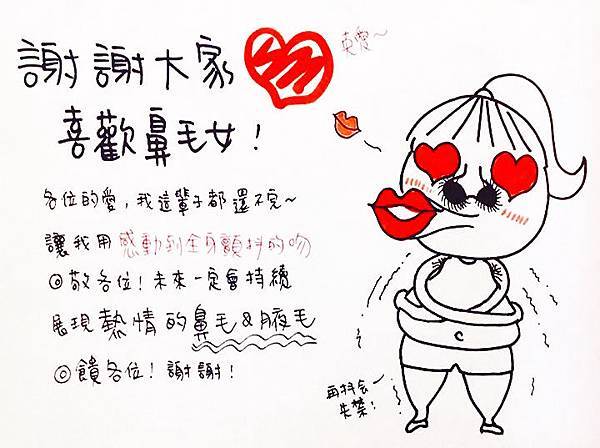 謝謝大家
真愛~
喜歡鼻毛女!
各位的愛,我這輩子都還不完~
讓我用感動到全身顫抖的吻
◎敬各位!未來一定會持續
展現熱情的鼻毛&腋毛
◎饋各位!謝謝!
再抖會~
失禁!